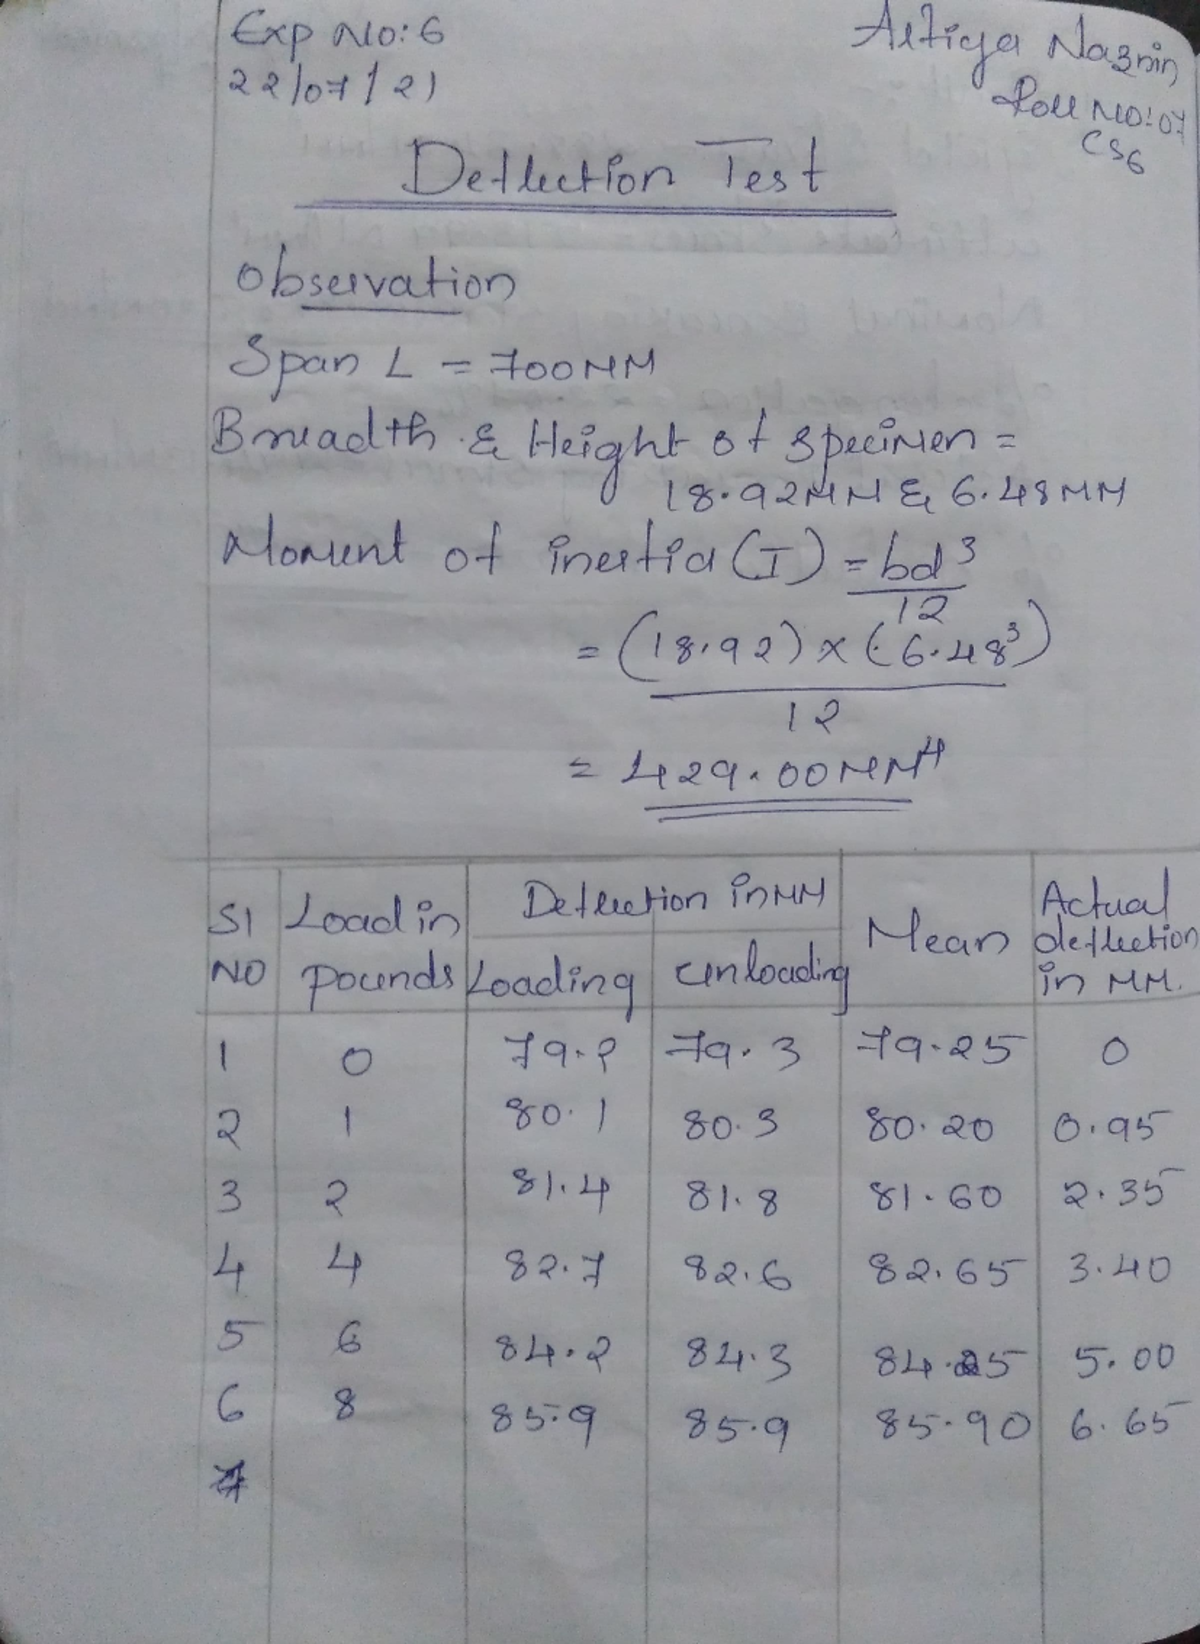 Exp No: 6
22/07/21
Altiya Naznin
Roll No: 07
CS6
Deflection Test
Observation
Span L = 700MM
Breadth & Height of specimen =
18.92MM & 6.48MM
Moment of inertia (I) = bd³/12
= (18.92) x (6.48³)
12
= 429.00MM⁴
Sl NO | Load in pounds | Deflection in MM | Mean | Actual deflection in MM.
Loading | unloading
1 0 79.2 79.3 79.25 0
2 1 80.1 80.3 80.20 0.95
3 2 81.4 81.8 81.60 2.35
4 4 82.7 82.6 82.65 3.40
5 6 84.2 84.3 84.25 5.00
6 8 85.9 85.9 85.90 6.65